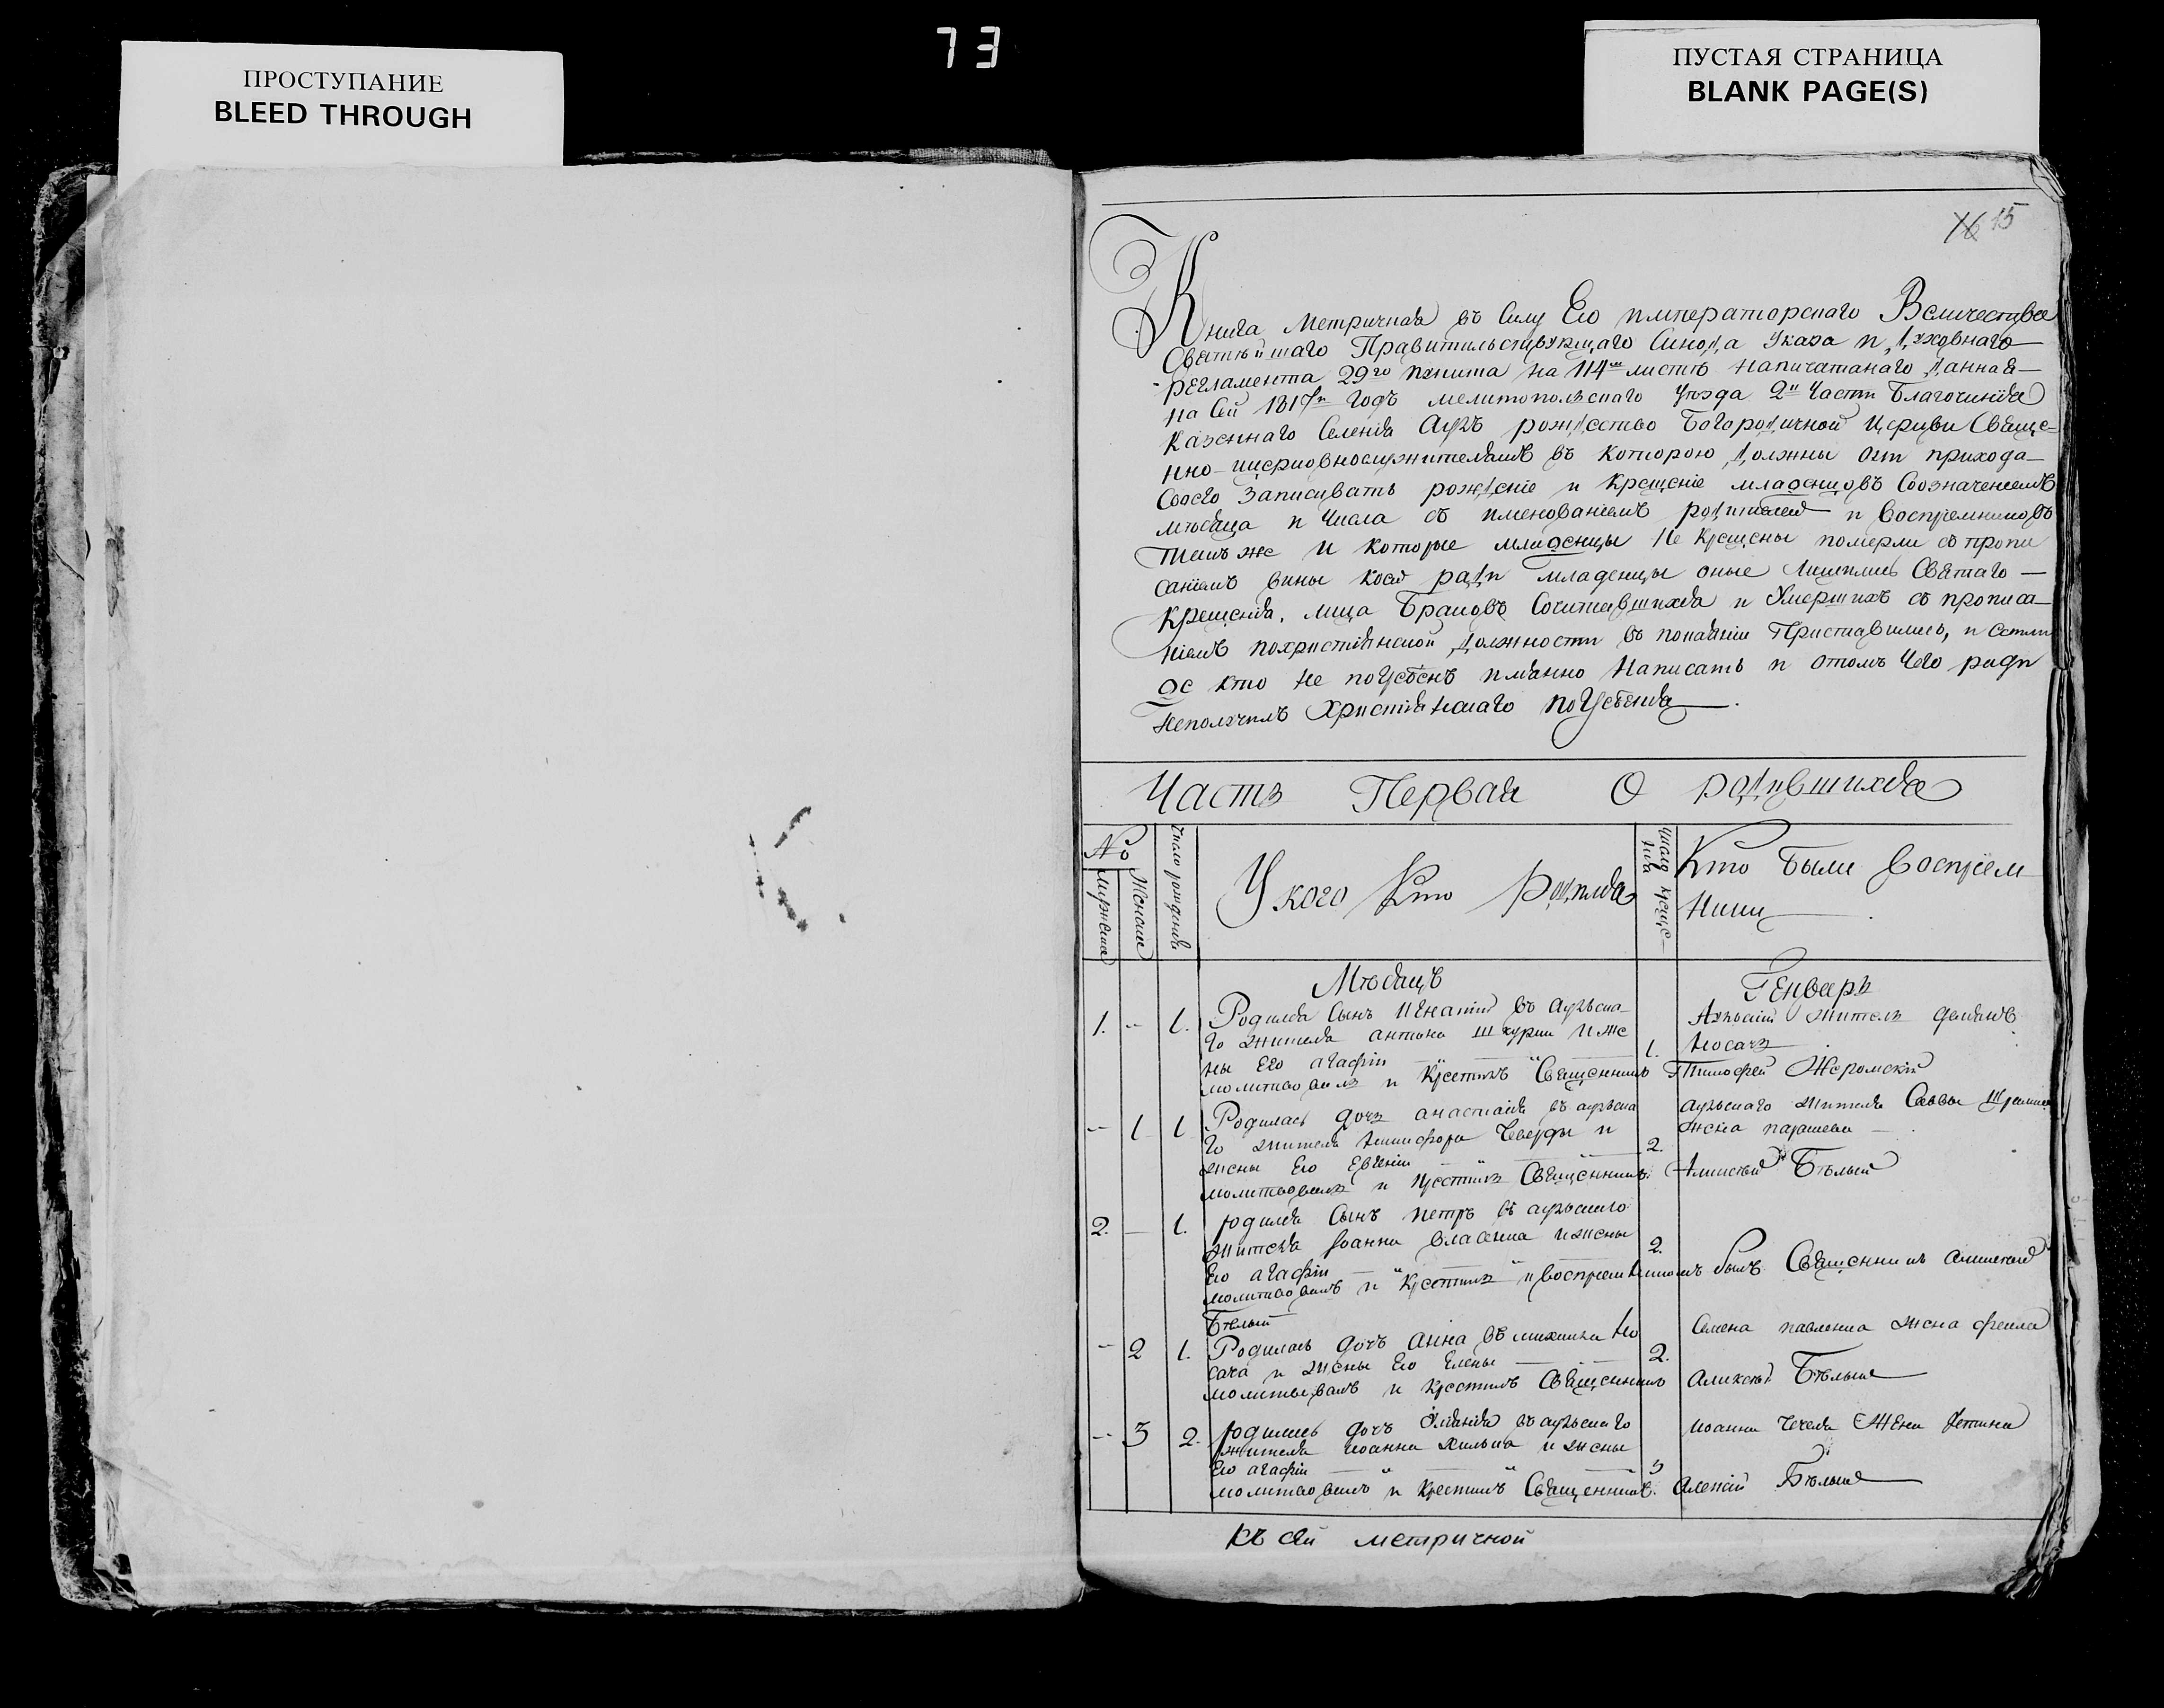 73
ПРОСТУПАНИЕ
BLEED THROUGH
ПУСТАЯ СТРАНИЦА
BLANK PAGE(S)
16 15
Книга Метричная въ Силу Его императорскаго Величества
Святѣйшаго Правительствующаго Синода Указа и духовнаго
регламента 29го пункта на 114м листѣ напичатанаго данная
на Сей 1817й годъ мелитопольскаго уѣзда 2й Части Благочинія
Казеннаго Селенія рождество Богородичной Церкви Свяще-
нно-церковнослужителямъ въ Которою должны отъ прихода
Своего Записувать рождѣніе и Крещеніе младенцовъ Созначениемъ
мѣсяца и Числа съ именованіемъ родителей и Воспремниковъ
тамъ же и которые младенцы не Крещены померли съ пропи
саніемъ вины коея ради младенцы оные лишились Святаго
Крещенія, лица Браковъ Сочитавшихся и Умершихъ съ прописа-
ніемъ похристіянской должности въ покаяніи Приставились, и Естли
де кто не погребенъ имянно Написать и отомъ Чего ради
неполучилъ Христіянскаго погребенія
Часть Первая О родившихся
№
мужеска
Женска
Число рожденія
У кого Кто Родился
Числа креще-
нія
Кто Были Воспріем
ники
Мѣсяцъ Генварь
1. - 1. Родился Сынъ Игнатій въ
го жителя антона и же
ны Его агафіи 1.
молитвовалъ и Крестилъ Священникъ Тимофей Жеромскій
- 1 1 Родилась дочь анастасія въ
го жителя и жена
жены Его Евгеніи 2.
молитвовалъ и Крестилъ Священникъ Алексѣй Бѣлый
2. - 1. родился Сынъ петръ въ
жителя Іоанна власенка и жены 2.
Его агафіи
молитвовалъ и Крестилъ и воспремникомъ былъ Священникъ
Бѣлый
- 2 1. Родилась дочь анна въ но Семена павленка жена
сача и жены Его Елены 2.
молитвовалъ и Крестилъ Священникъ Алексѣй Бѣлый
- 3 2. родилась дочь въ Іоанна
жителя іоанна и жены
Его агафіи 3
молитвовалъ и Крестилъ Священникъ Алексій Бѣлый
къ сей метричной